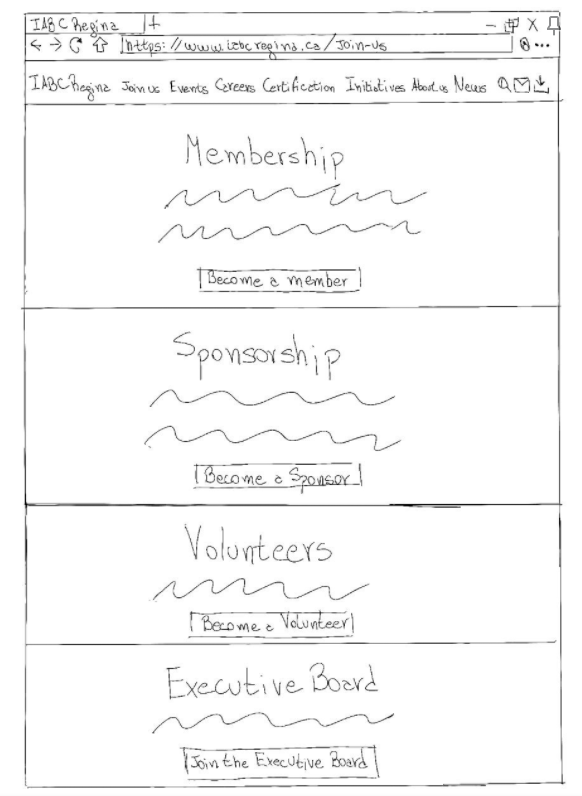 IABC Regina
https://www.iabcregina.ca/Join-us
IABC Regina Join us Events Careers Certification Initiatives About us News
Membership
Become a member
Sponsorship
Become a Sponsor
Volunteers
Become a Volunteer
Executive Board
Join the Executive Board